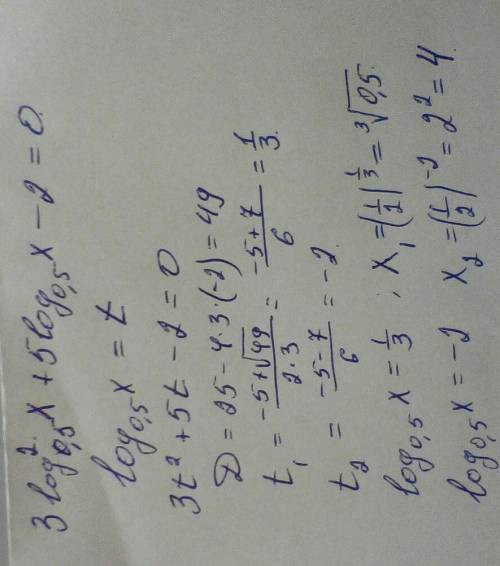 3 log²₀,₅ x + 5 log₀,₅ x − 2 = 0.
log₀,₅ x = t
3t² + 5t − 2 = 0
D = 25 − 4·3·(−2) = 49
t₁ = (−5+√49)/(2·3) = (−5+7)/6 = 1/3.
t₂ = (−5−7)/6 = −2.
log₀,₅ x = 1/3 ; x₁ = (1/2)^(1/3) = ³√0,5.
log₀,₅ x = −2 x₂ = (1/2)^(−2) = 2² = 4.